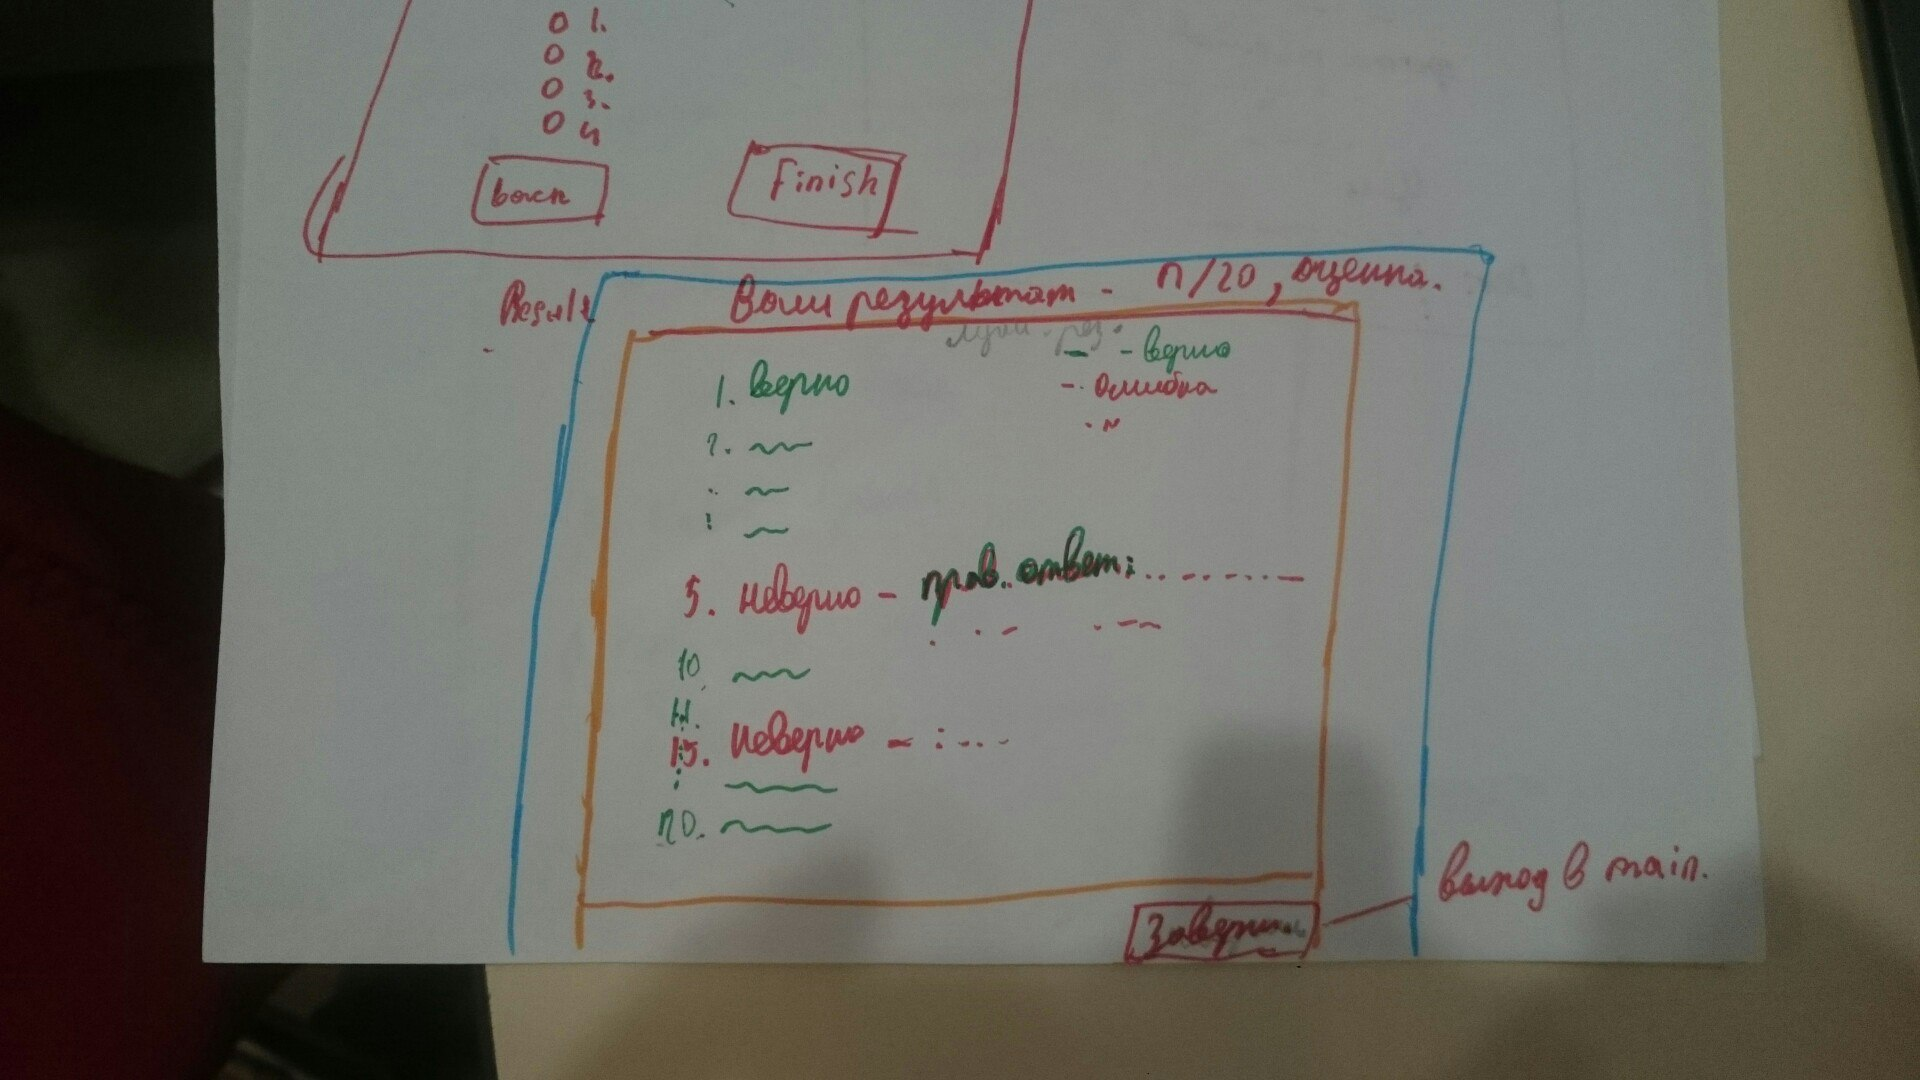 1.
2.
3.
4
back
Finish
Result
Ваш результат - n/20, оценка.
- - верно
- ошибка
1. верно
2.
5. неверно - прав. ответ:
10.
11.
15. неверно -
20.
Завершить
выход в main.